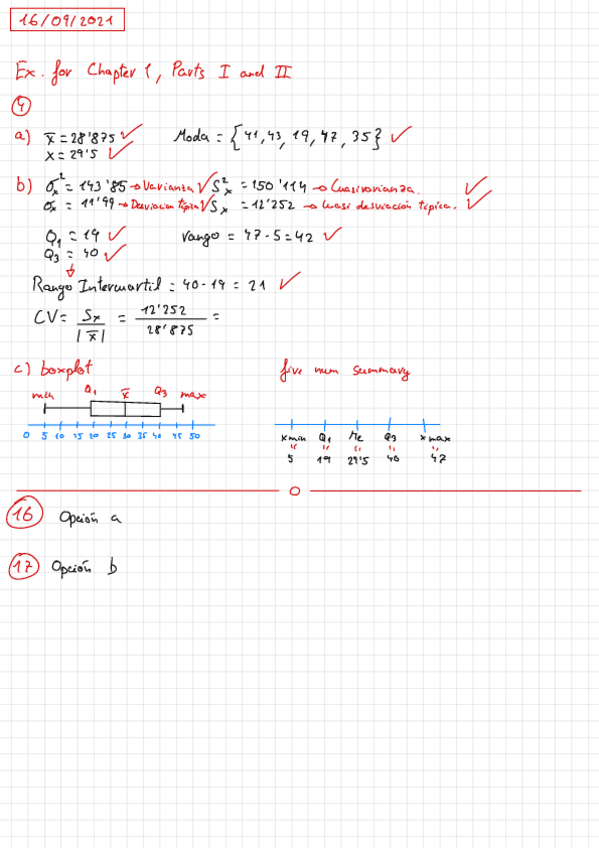 16/09/2021
Ex. for Chapter 1, Parts I and II
4
a) x̄ = 28'875 ✓ Moda = {41, 43, 19, 47, 35} ✓
x = 29'5 ✓
b) σx² = 143'85 → Varianza ✓ Sx² = 150'114 → Cuasivarianza. ✓
σx = 11'99 → Desviacion típica ✓ Sx = 12'252 → Cuasi desviación típica. ✓
Q1 = 19 ✓ rango = 47 - 5 = 42 ✓
Q3 = 40 ✓
↓
Rango Intercuartil = 40 - 19 = 21 ✓
CV = Sx / |x̄| = 12'252 / 28'875 =
c) boxplot five num summary
min Q1 x̄ Q3 max
0 5 10 15 20 25 30 35 40 45 50
xmin Q1 Me Q3 xmax
5 19 29'5 40 47
16 Opción a
17 Opción b